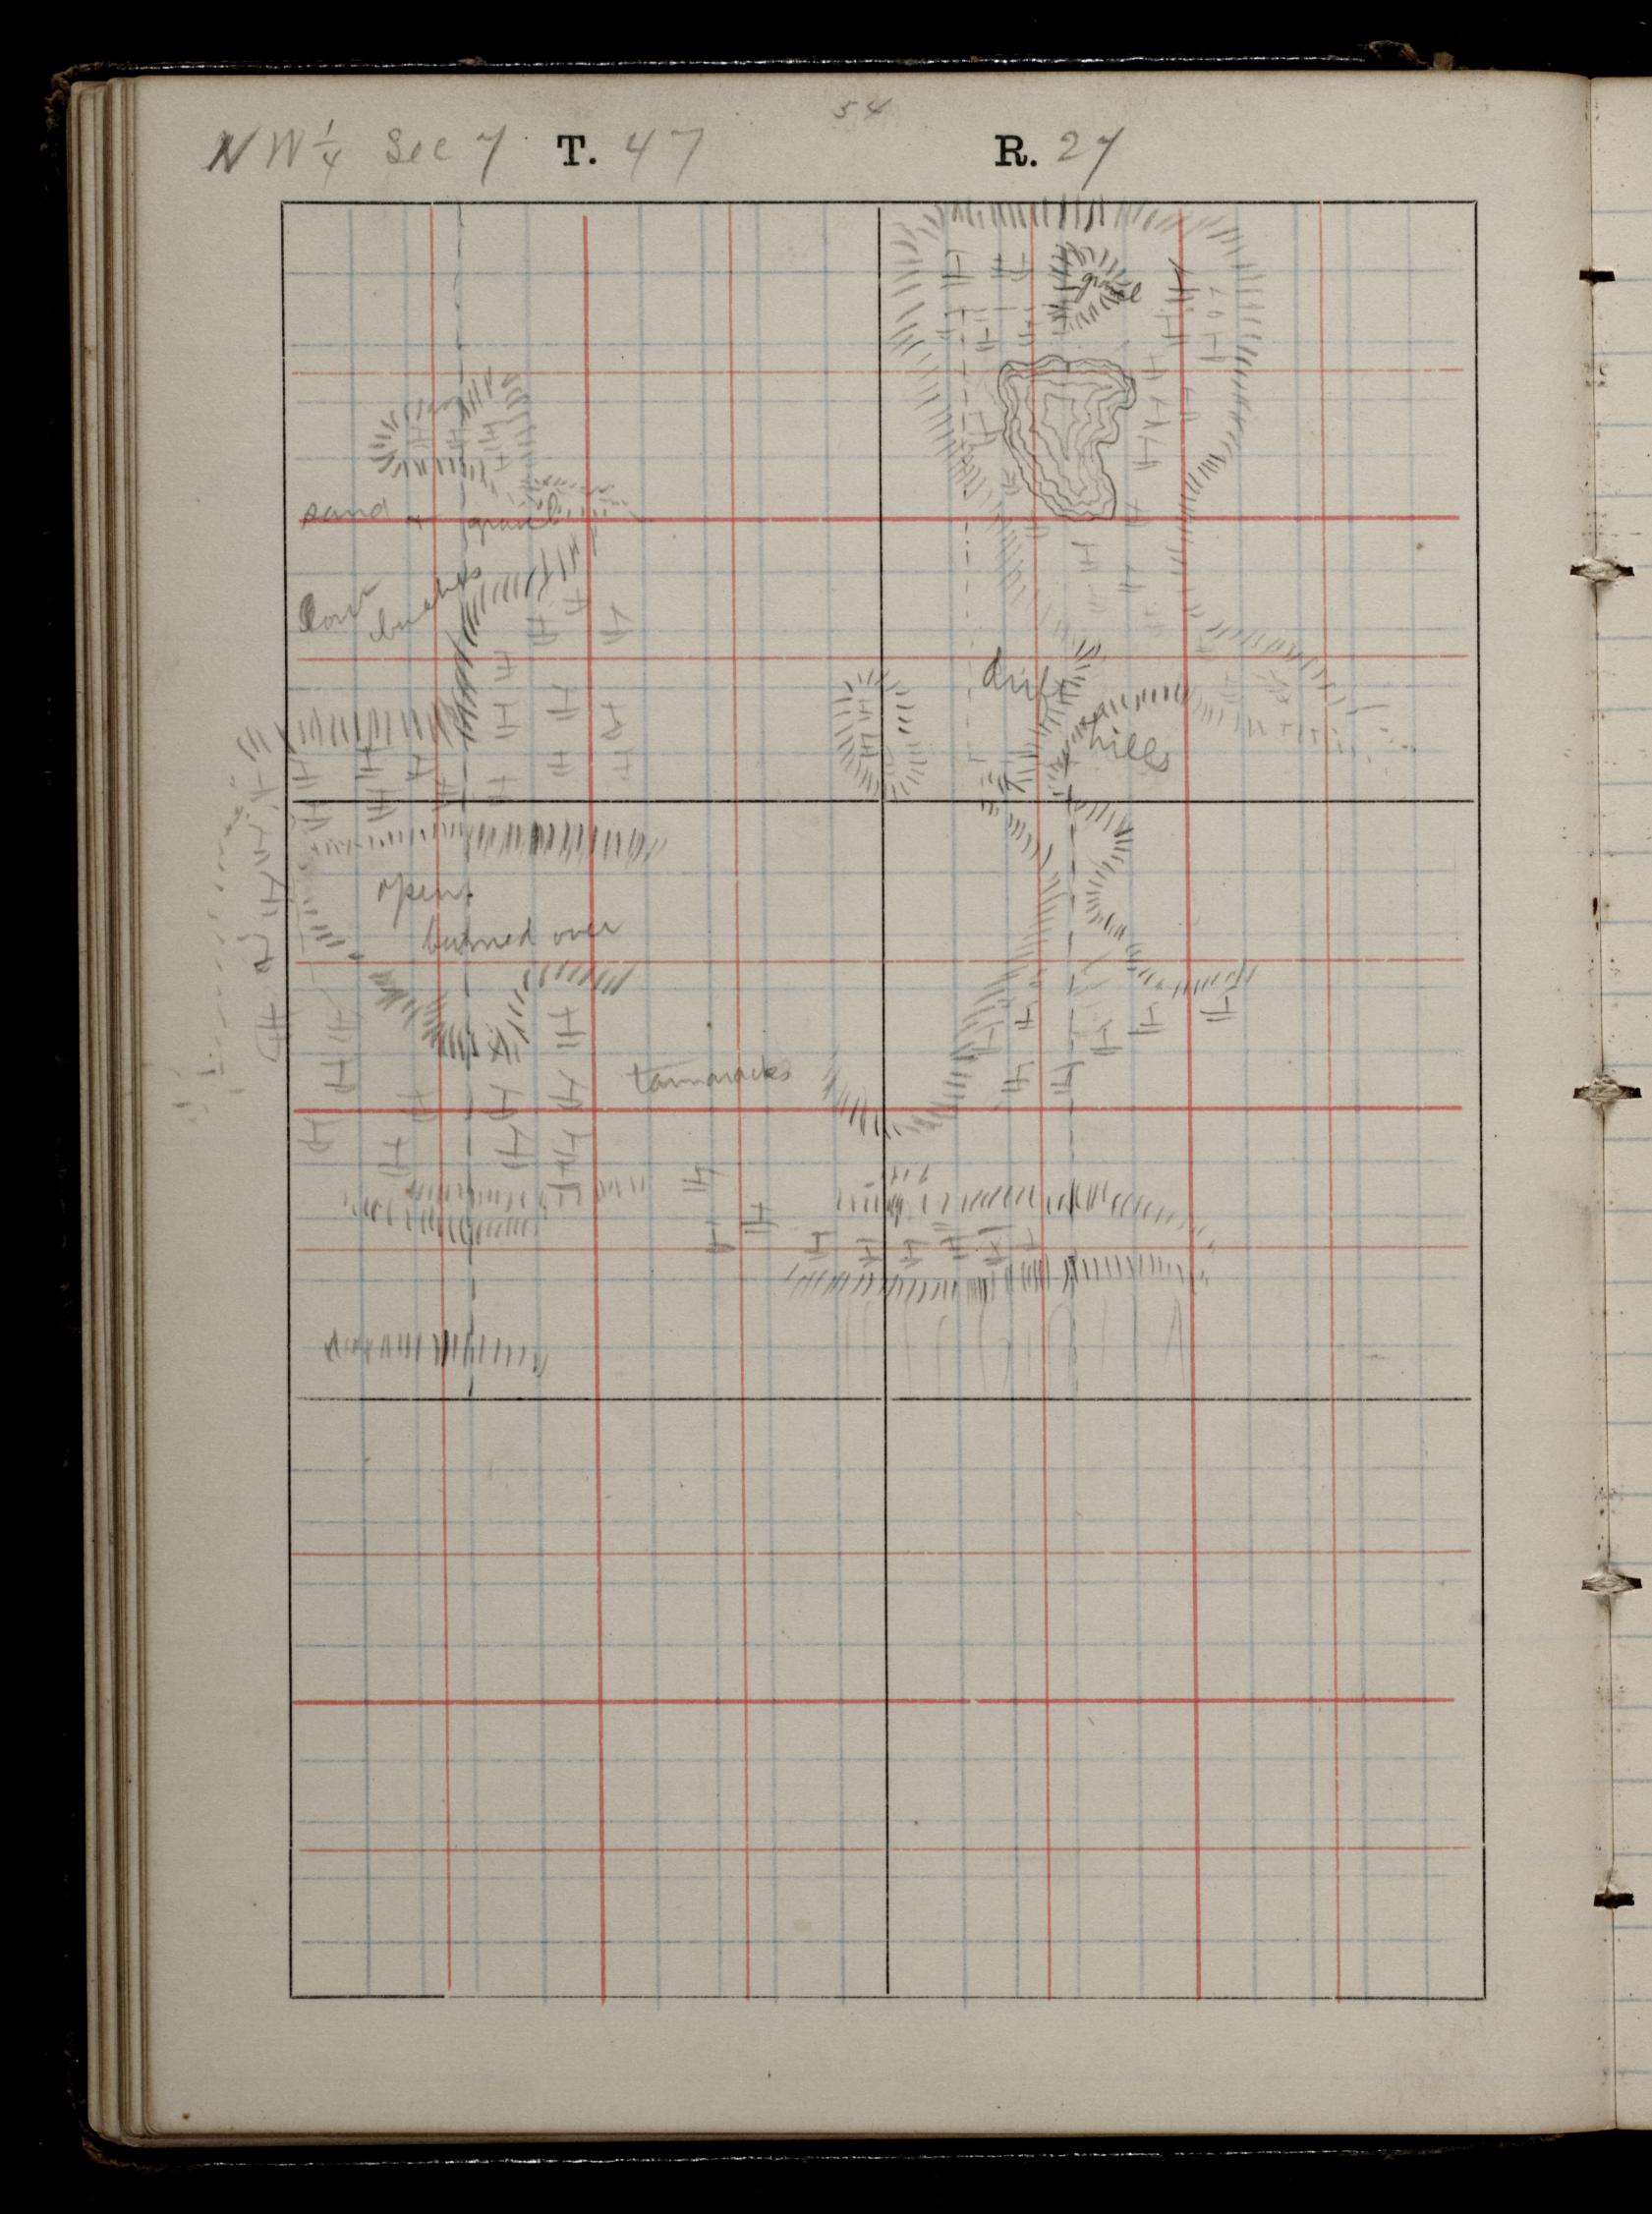 54
NW 1/4 Sec 7 T. 47 R. 27
gravel
sand + gravel
low bushes
drift
hills
open
burned over
tammaracks